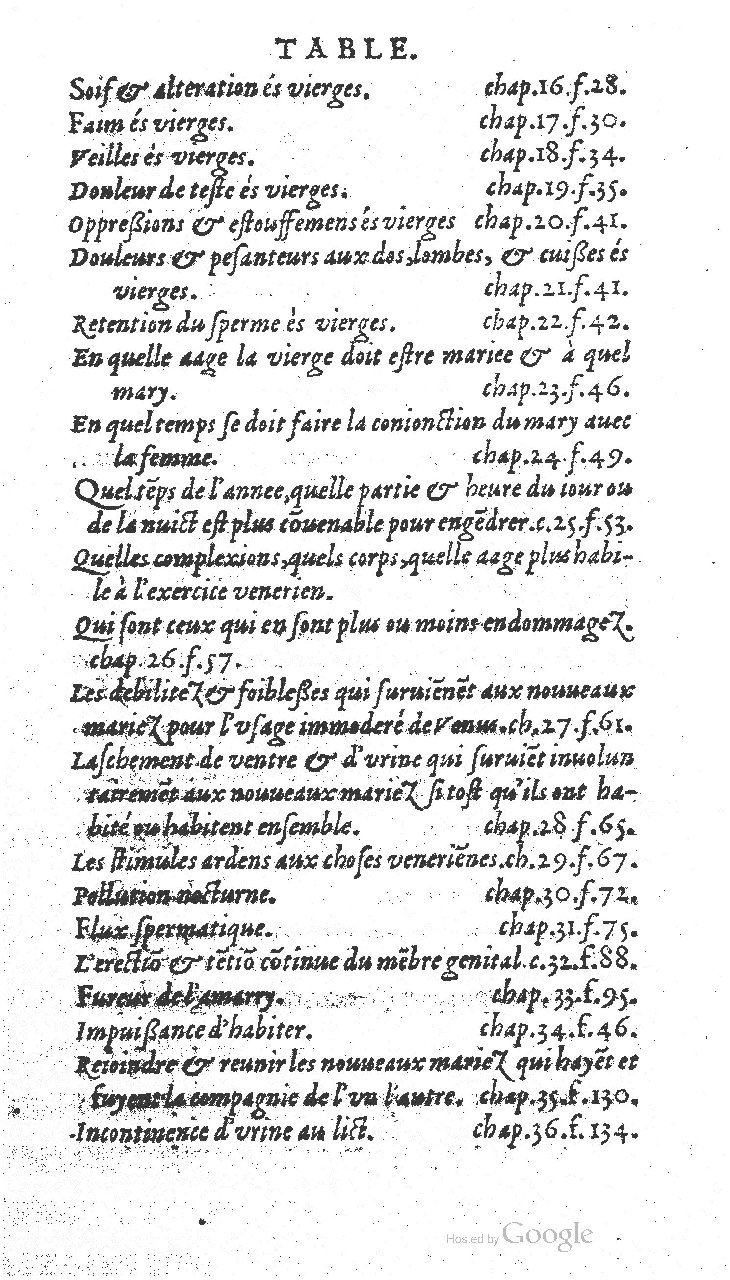 TABLE.
Soif & alteration és vierges. chap.16.f.28.
Faim és vierges. chap.17.f.30.
Veilles és vierges. chap.18.f.34.
Douleur de teste és vierges. chap.19.f.35.
Oppreßions & estouffemens és vierges chap.20.f.41.
Douleurs & pesanteurs aux dos, lombes, & cuißes és
vierges. chap.21.f.41.
Retention du sperme és vierges. chap.22.f.42.
En quelle aage la vierge doit estre mariee & à quel
mary. chap.23.f.46.
En quel temps se doit faire la conionction du mary auec
la femme. chap.24.f.49.
Quel tẽps de l'annee, quelle partie & heure du iour ou
de la nuict est plus cõuenable pour engẽdrer.c.25.f.53.
Quelles complexions, quels corps, quelle aage plus habi-
le à l'exercice venerien.
Qui sont ceux qui en sont plus ou moins endommagez.
chap.26.f.57.
Les debilitez & foibleßes qui suruiẽnẽt aux nouueaux
mariez pour l'vsage immoderé de Venus.ch.27.f.61.
Laschement de ventre & d'vrine qui suruiẽt inuolun
tairemẽt aux nouueaux mariez si tost qu'ils ont ha-
bité ou habitent ensemble. chap.28.f.65.
Les stimules ardens aux choses veneriẽnes.ch.29.f.67.
Pollution nocturne. chap.30.f.72.
Flux spermatique. chap.31.f.75.
L'erectiõ & tẽtiõ cõtinue du mẽbre genital.c.32.f.88.
Fureur de l'amarry. chap.33.f.95.
Impuißance d'habiter. chap.34.f.46.
Reioindre & reunir les nouueaux mariez qui hayẽt et
fuyent la compagnie de l'vn l'autre. chap.35.f.130.
Incontinence d'vrine au lict. chap.36.f.134.
Hosted by Google